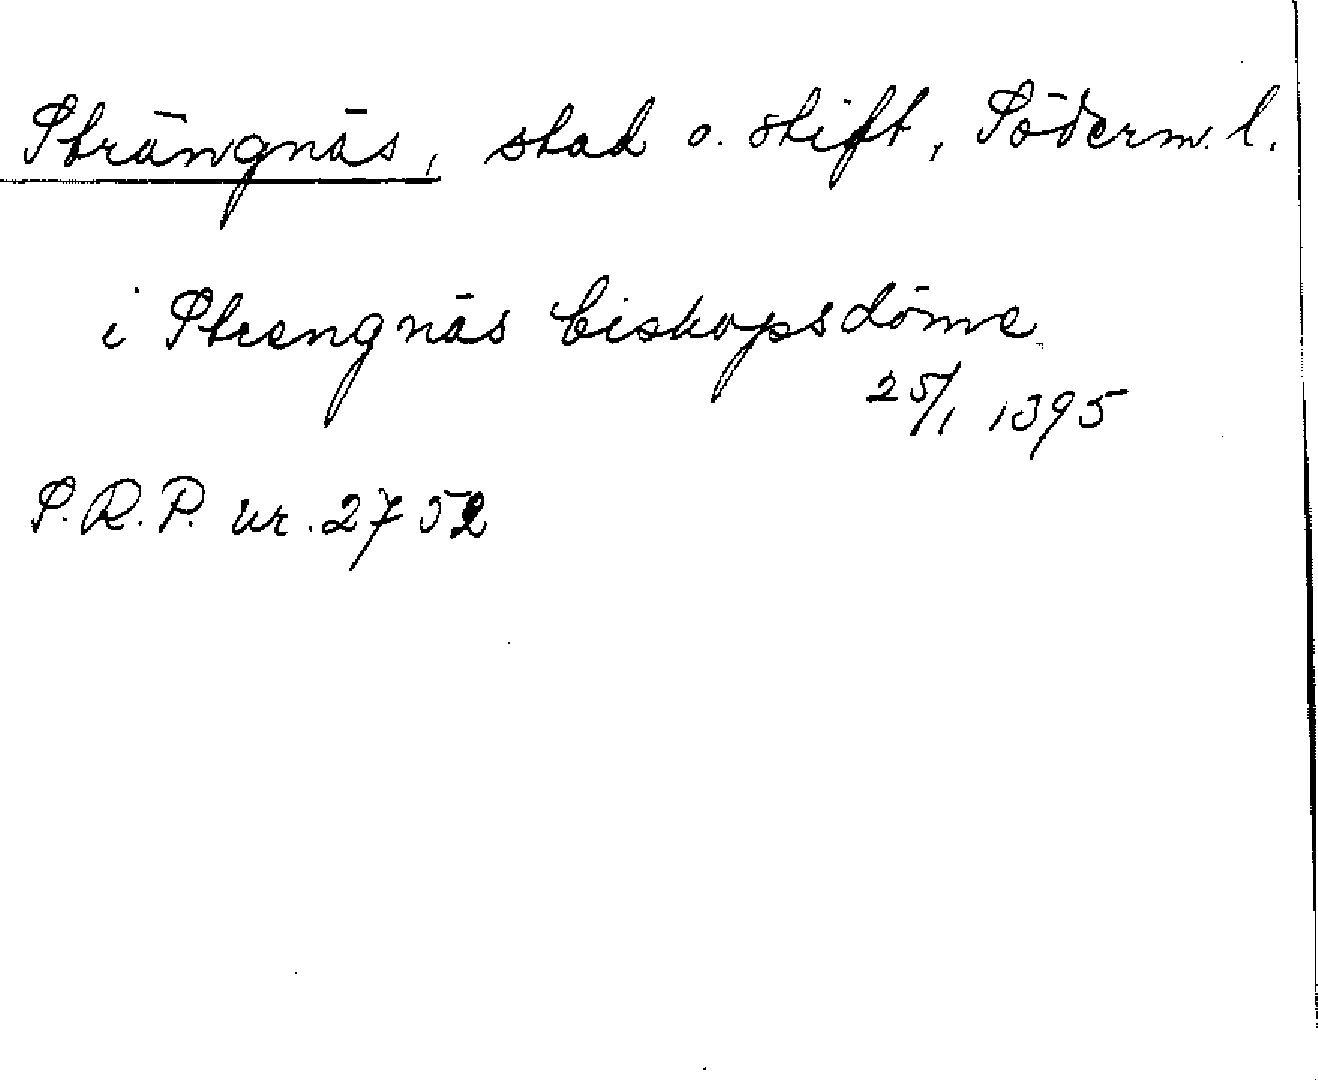 Strängnäs, stad o. stift, Söderm. l.
i Strengnäs biskopsdöme
25/1 1395
S.R.P. nr. 2752